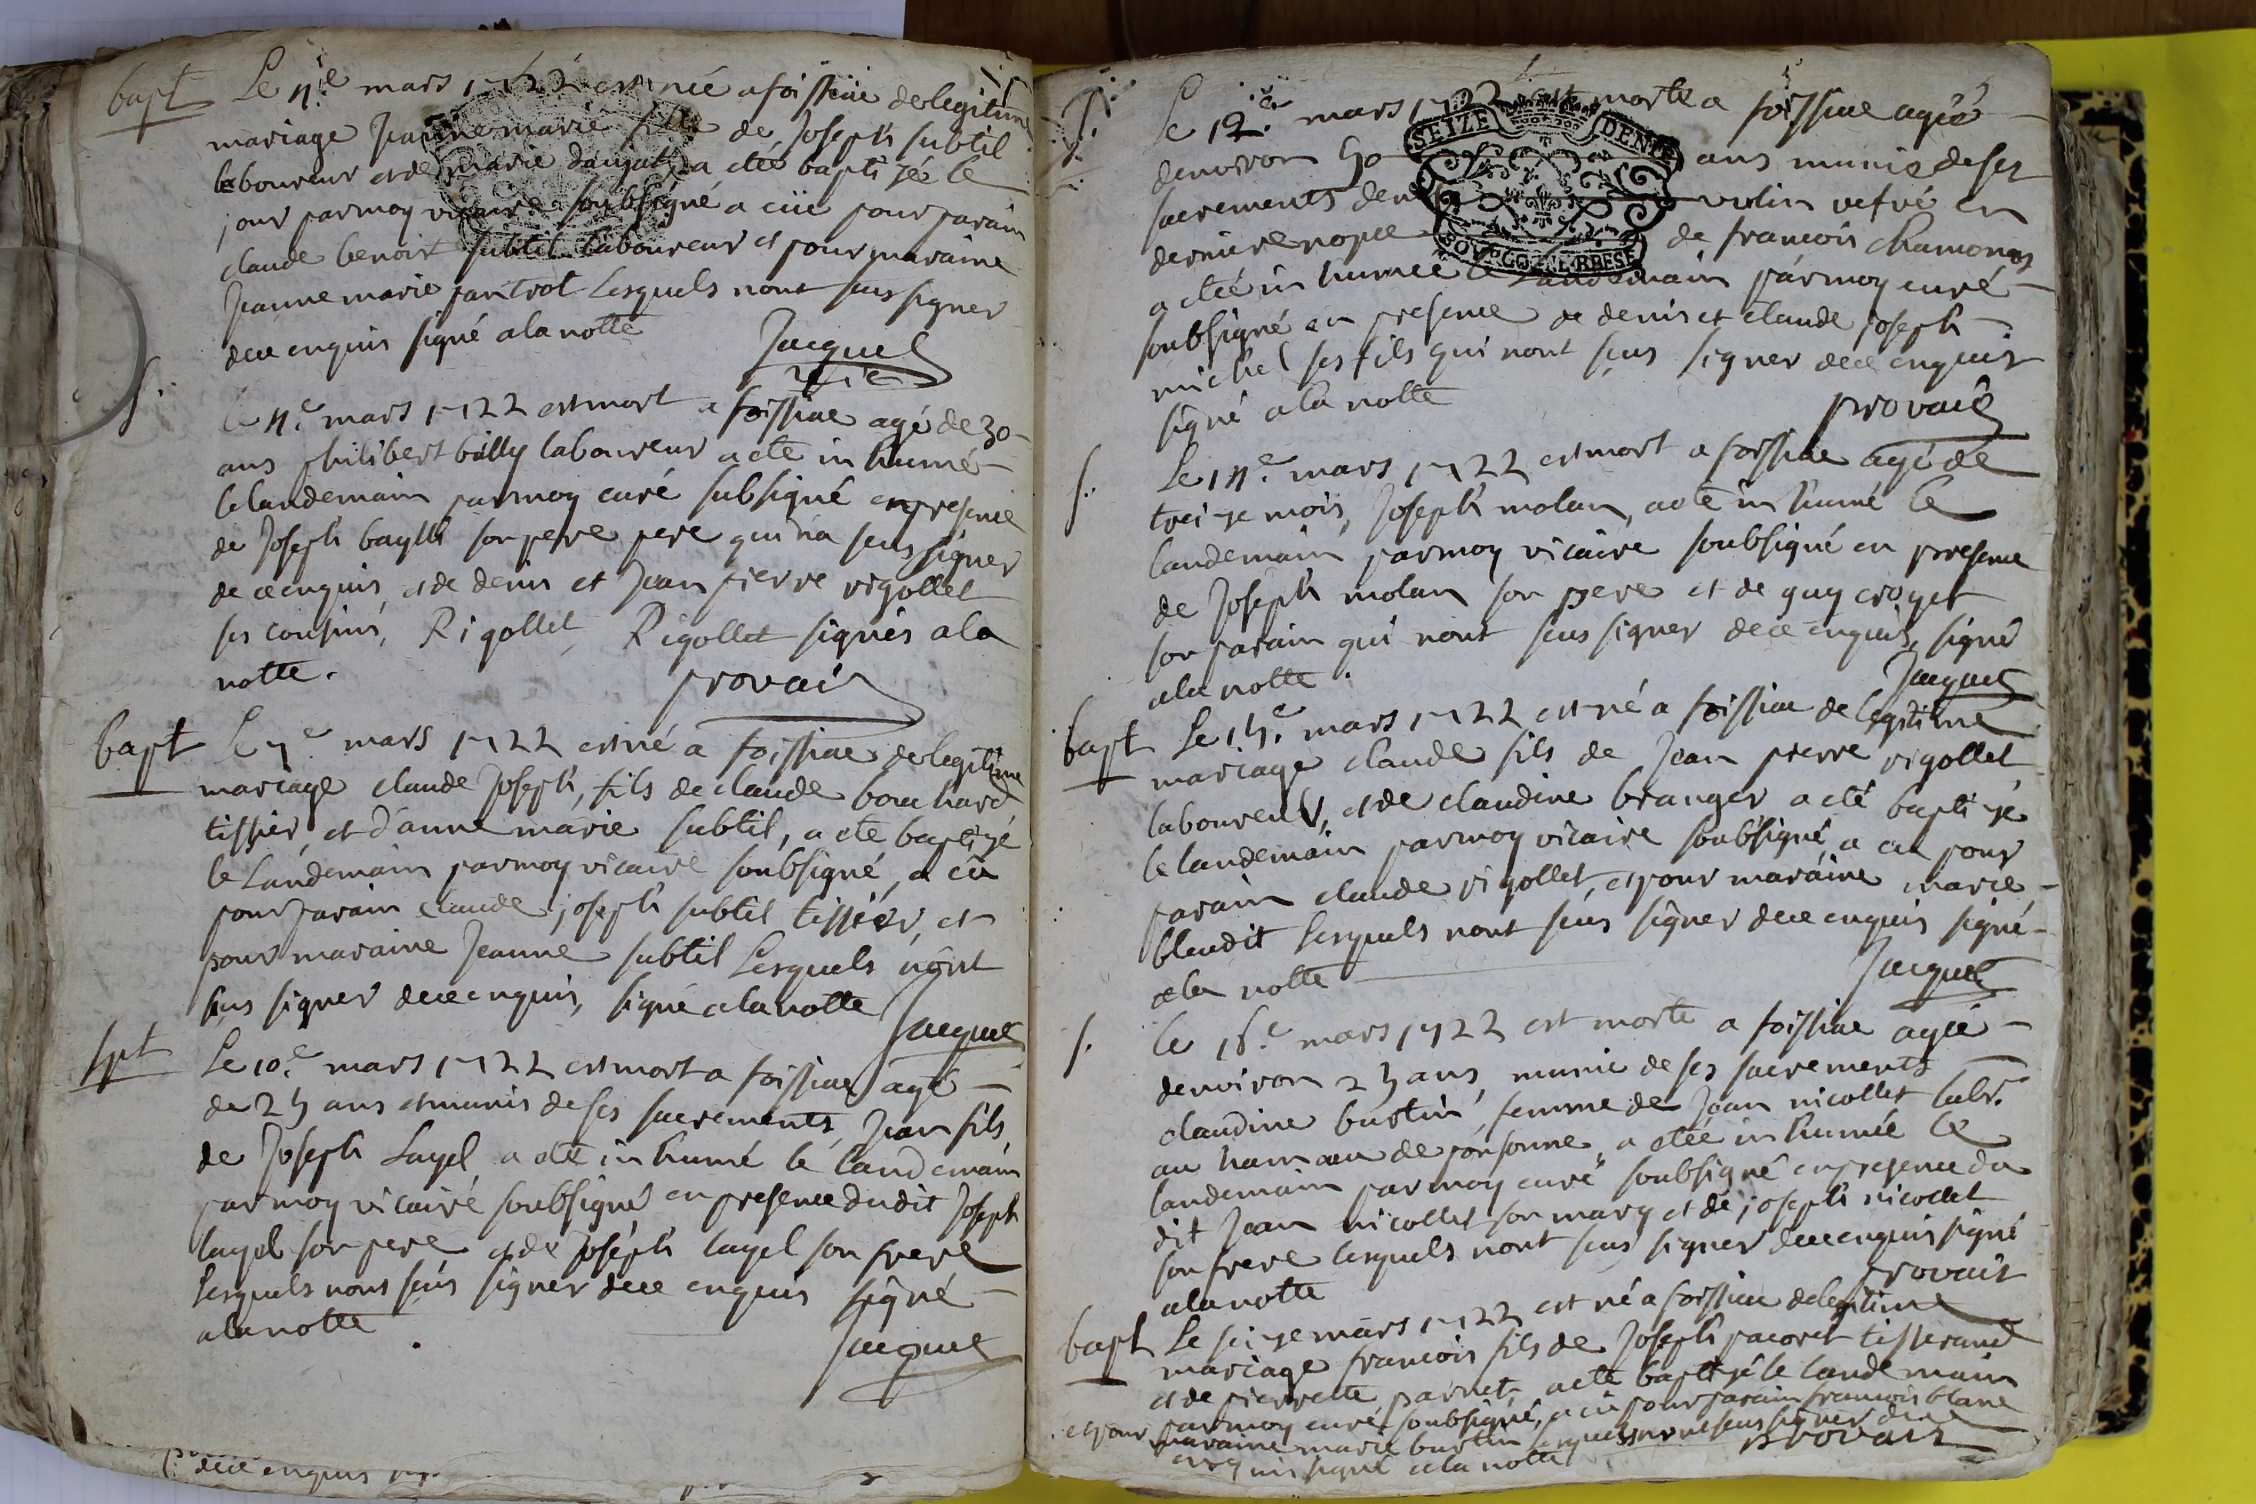 bapt
Le 4.e mars 1722 est née a foissiae de legitime
mariage Jeanne marie fille de Joseph subtil
laboureur et de marie daujat, a eté baptizé le
jour par moy vicaire soubsigné a eüe pour parain
claude benoit subtil laboureur et pour maraine
Jeanne marie pantrot Lesquels n'ont sceus signer
de ce enquis signé a la notte
Jacquet
vic
s.
le 4.e mars 1722 est mort a foissiae agé de 30
ans philibert billy laboureur a eté inhumé
le landemain par moy curé subsigné en presence
de Joseph baylli son pere pere qui n'a sceus signer
de ce enquis, et de denis et Jean pierre rigollet
ses cousins, Rigollet Rigollet signés a la
notte.
provais
bapt
Le 7e mars 1722 est né a foissiae de legitime
mariage claude Joseph, fils de claude bouchard
tissier, et d'anne marie subtil, a eté baptizé
le Landemain par moy vicaire soubsigné, a eu
pour parain claude joseph subtil tissier, et
pour maraine Jeanne subtil Lesquels n'ont
sceus signer de ce enquis, signé a la notte
Jacquet
spt
Le 10.e mars 1722 est mort a foissiae agé
de 25 ans et munis de ses sacrements, Jean fils
de Joseph Layel a eté inhumé le landemain
par moy vicaire soubsigné en presence du dit Joseph
layel son pere et de Joseph layel son frere
Lesquels n'ont sceus signer de ce enquis signé
a la notte
Jacquet
de ce enquis
s.
Le 12.e mars 1722 est morte a foissiae agée
denviron 50 ans munie de ses
sacrements veufve en
derniere nopce de francois chamonas
a eteé inhumeé le Landemain par moy curé
soubsigné en presence de denis et claude joseph
michel ses fils qui n'ont sceus signer de ce enquis
signé a la notte
provais
SEIZE DENIE
BOVRGOGNE BRESE
s.
Le 14.e mars 1722 est mort a foissiae agé de
treize mois, Joseph molan, a eté inhumé le
landemain par moy vicaire soubsigné en presence
de Joseph molan son pere et de guy croyet
son parain qui n'ont sceus signer de ce enquis, signé
a la notte.
Jacquet
bapt
Le 15.e mars 1722 est né a foissiae de legitime
mariage claude fils de Jean pierre rigollet
laboureur, et de claudine branger a eté baptizé
le landemain par moy vicaire soubsigné, a eu pour
parain claude rigollet, et pour maraine marie
blandit lesquels n'ont sceus signer de ce enquis signé
a la notte
Jacquet
s.
le 16.e mars 1722 est morte a foissiae ageé
denviron 25 ans, munie de ses sacrements
claudine burtin, femme de Jean nicollet labr.
au hameau de ponsonne, a eteé inhumeé le
landemain par moy curé soubsigné en presence du
dit Jean nicollet son mary et de joseph nicollet
son frere lesquels n'ont sceus signer de ce enquis signé
a la notte
provais
bapt
Le seize mars 1722 est né a foissiae de legitime
mariage francois fils de Joseph pacoret tisserand
et de pierrette parnet, a eté baptizé le landemain
par moy curé soubsigné, a eu pour parain francois blanc
et pour maraine marie burtin lesquels n'ont sceus signer de ce
enquis signé a la notte
provais